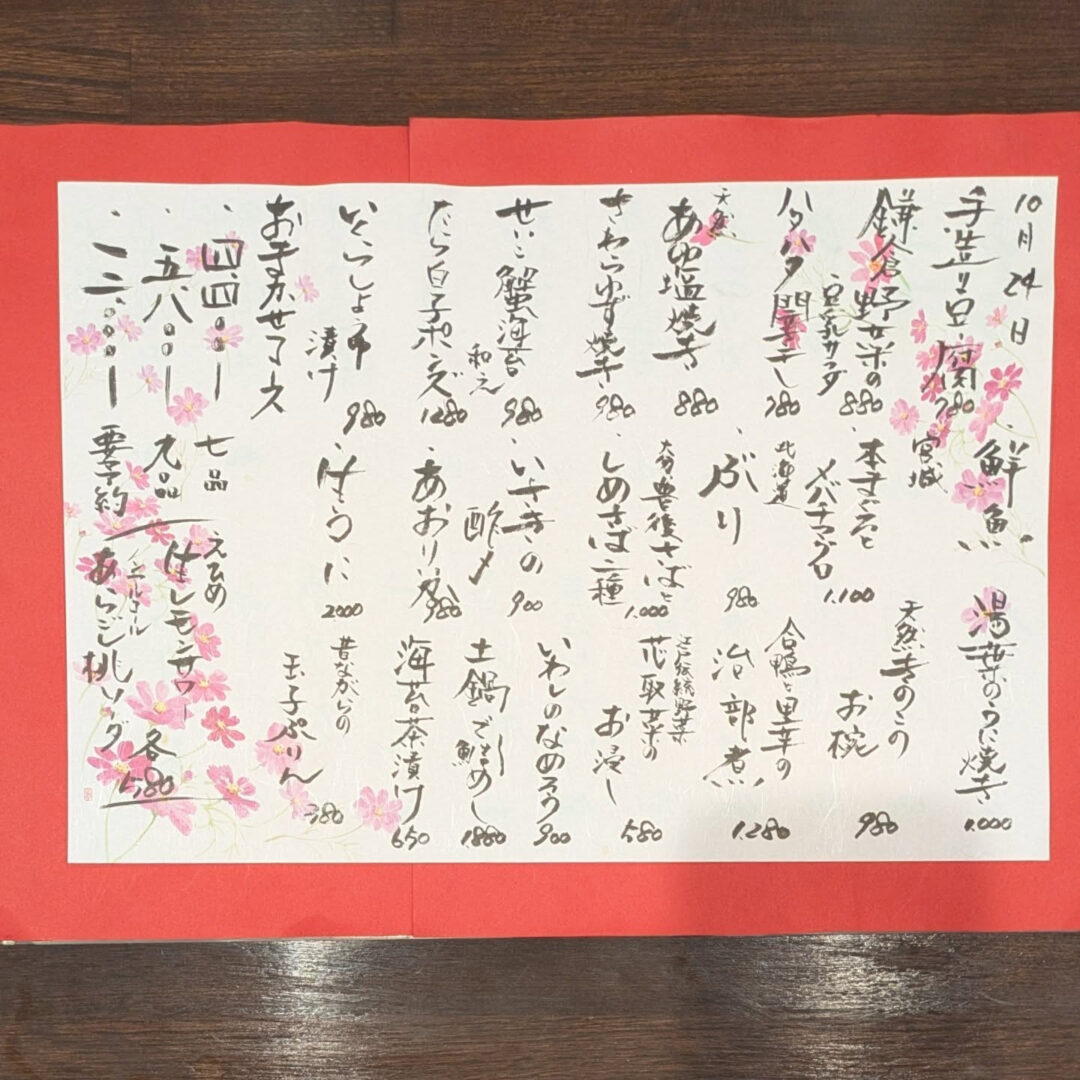 10月24日
手造り豆腐 780
鎌倉野菜の
豆乳サラダ 880
ハタハタ開干し 780
天然
あゆ塩焼き 880
さわらゆず焼き 980
せいこ蟹海苔
和え 980
たら白子ポンズ 1280
いくらしょうゆ
漬け 980
おまかせコース
・四、四〇〇ー 七品
・五、八〇〇ー 九品
・一二、〇〇〇ー 要予約
・鮮魚
宮城
・本まぐろと
メバチマグロ 1.100
北海道
・ぶり 980
大分豊後さばと
・しめさば二種 1.000
・いさきの
酢〆 900
・あおりいか 980
・生うに 2000
湯葉のうに焼き 1.000
天然きのこの
お椀 980
合鴨と里芋の
治部煮 1.280
江戸伝統野菜
芯取菜の
お浸し 580
いわしのなめろう 900
土鍋で鯛めし 1880
海苔茶漬け 650
昔ながらの
玉子ぷりん 380
えひめ
生レモンサワー
ノンアルコール
あらごし桃ソーダ
各580